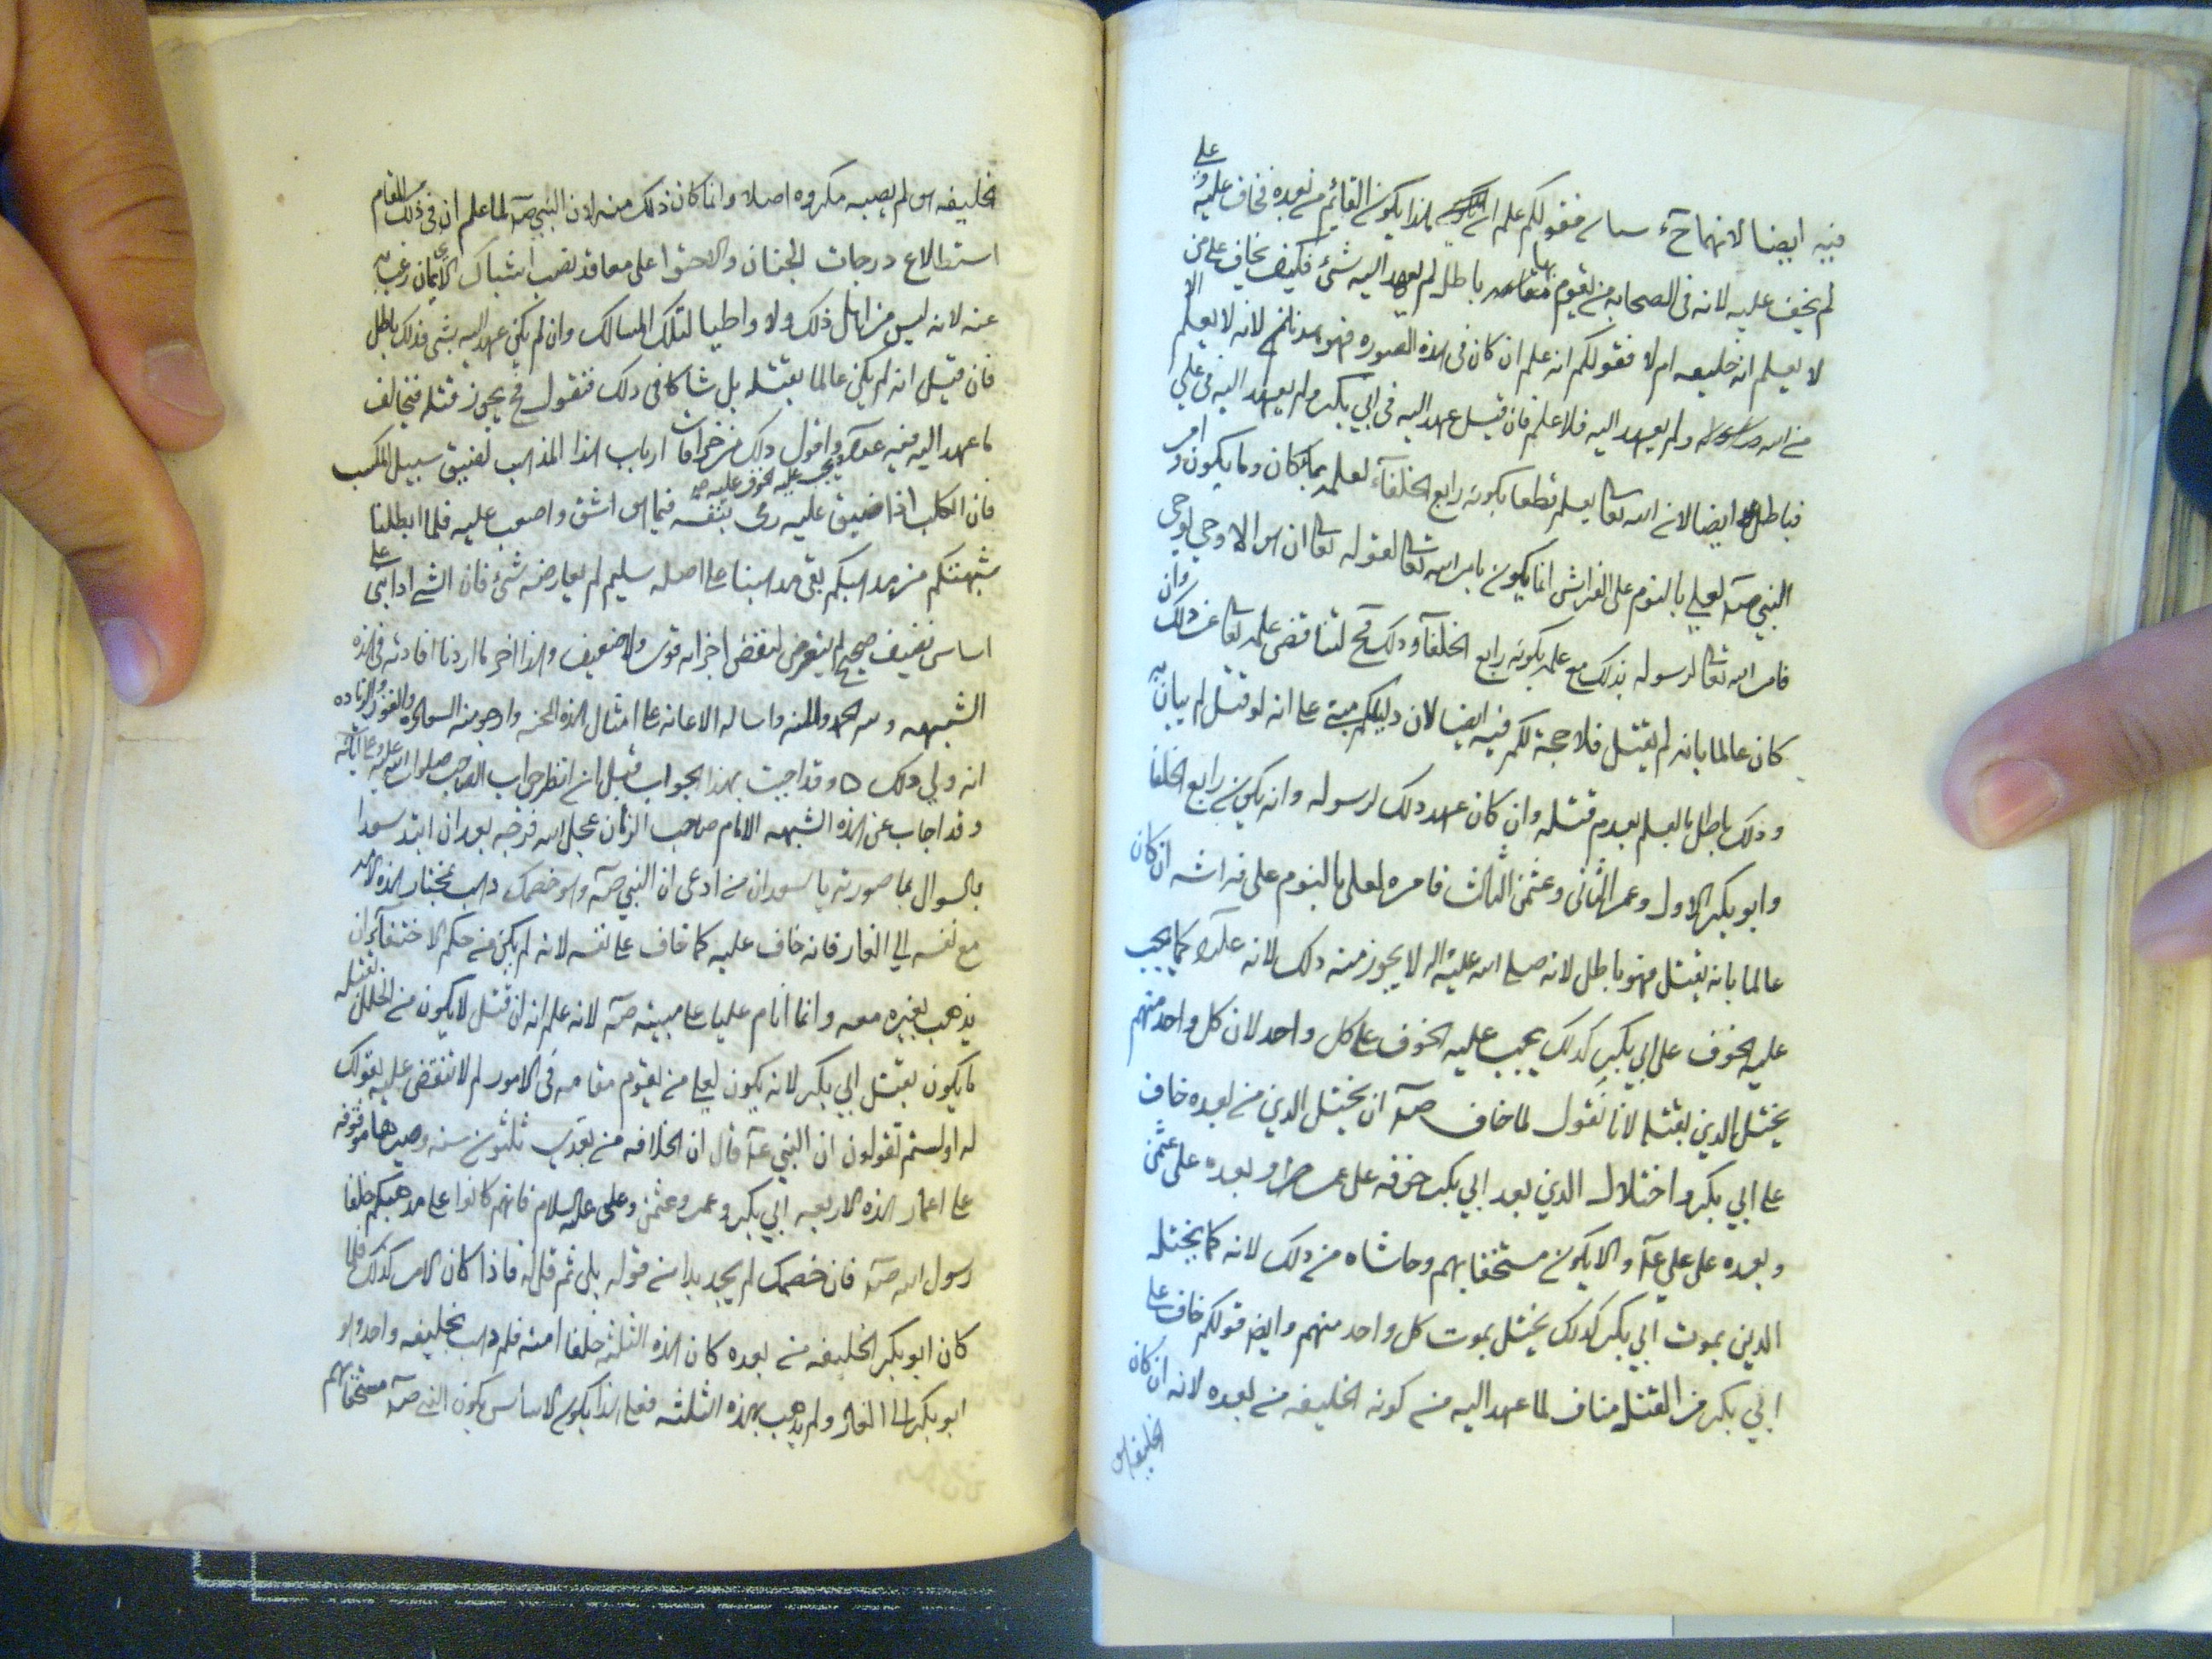 فيه ايضا لانهما ح سيان فقولكم علم ان هذا يكون القائم من بعده فخاف عليه وعلي
لم يخف عليه لانه في الصحابه من يقوم مقامه باطل لم يعهد اليه شئ فكيف يخاف على من
لا يعلم انه خليفه ام لا فقولكم انه علم ان كان في هذه الصوره فهو لانه لا يعلم الا
من الله ولم يعهد اليه فلا علم فان قيل عهد اليه في ابي بكر ولم يعهد اليه في علي
فباطل ايضا لان الله تعالى يعلم قطعا بكونه رابع الخلفآء لعلمه بما كان وما يكون وامر
النبي صم لعلي بالنوم على الفراش انما يكون بامر الله تعالى لقوله تعالى ان هو الا وحي يوحى
فامر الله تعالى لرسوله بذلك مع علمه بكونه رابع الخلفآء وذلك قبح لتناقض علمه تعالى عن ذلك وان
كان عالما بانه لم يقتل فلا حجة لكم فيه ايضا لان دليلكم مبني على انه لو قتل لم يبان به
وذلك باطل بالعلم بعدم قتله وان كان عهد ذلك لرسوله وانه يكون رابع الخلفا
وابو بكر الاول وعمر الثاني وعثمن الثالث فامره لعلي بالنوم على فراشه ان كان
عالما بانه يقتل فهو باطل لانه صلى الله عليه واله لا يجوز منه ذلك لانه كما يجب
عليه الخوف على ابي بكر كذلك يجب عليه الخوف على كل واحد لان كل واحد منهم
يختل الدين بقتله لانا نقول لما خاف صم ان يختل الدين من بعده خاف
على ابي بكر واختلال الدين بعد ابي بكر خوفه على عمر وبعده على عثمن
وبعده على علي عم والا يكون مستخفا بهم وحاشاه من ذلك لانه كما يختل
الدين بموت ابي بكر كذلك يختل بموت كل واحد منهم وايضا قولكم خاف على
ابي بكر من القتل مناف لما عهد اليه من كونه الخليفه من بعده لانه ان كان
الخليفه هو
الخليفه هو لم يصبه مكروه اصلا وانما كان ذلك منه لان النبي صم لما علم ان في ذلك المقام
استطلاع درجات الجنان والاحتوا على معاقد نصب اشباك الايمان رغب به
عنه لانه ليس من اهل ذلك ولا واطيا لتلك المسالك وان لم يكن عهد اليه بشئ فذلك باطل
فان قيل انه لم يكن عالما بقتله بل شاكا في ذلك فنقول فح يجوز قتله فيخالف
ما عهد اليه فيه ويجب عليه الخوف عليه واقول ذلك من خرافات ارباب هذا المذهب لضيق سبيل المكسب
فان الكلب اذا ضيق عليه رمى بنفسه فيما هو اشق واصعب عليه فلما ابطلنا
شبهتكم من مذهبكم بقي مذهبنا على اصله سليم لم يعارضه شئ فان الشئ اذا بني على
اساس نفيف صحيح لم يتعرض لنقض اجزائه قوي ولا ضعيف وهذا اخر ما اردنا افادته في هذه
الشبهه ولله الحمد والمنه واساله الاعانه على امثال هذه المحنه وارجو منه والفوز والزياده
انه ولي ذلك ٥ وقد اجبت بهذا الجواب قبل ان انظر جواب الصاحب صلوات الله عليه وعلى آبائه
وقد اجاب عن هذه الشبهه الامام صاحب الزمان عجل الله فرجه بعد ان ابتد سعدا
بالسوال بما صورته يا سعد ان من ادعى ان النبي صم وهو خصمك ذهب بمختار هذه الامه
مع نفسه الى الغار فانه خاف عليه كما خاف على نفسه لانه لم يكن من حكم الاختفآء ان
يذهب بغيره معه وانما انام عليا على مبيته صم لانه علم انه ان قتل لا يكون من الخلل بقتله
ما يكون بقتل ابي بكر لانه يكون لعلي من يقوم مقامه في الامور لم لا تنقض عليه بقولك
له اولستم تقولون ان النبي عم قال ان الخلافه من بعدي ثلثون سنه وصيرها موقوفه
على اعمار هذه الاربعه ابي بكر وعمر وعثمن وعلى عليه السلام فانهم كانوا على مذهبكم خلفا
رسول الله صم فان خصمك لم يجد بدا من قوله بلى ثم قل له فاذا كان الامر كذلك فلما
كان ابو بكر الخليفه من بعده كان هذه الثلثه خلفا امته فلم ذهب بخليفه واحد وهو
ابو بكر الى الغار ولم يذهب بهذه الثلثه فعلى هذا يكون الاساس يكون النبي صم مستخفا بهم